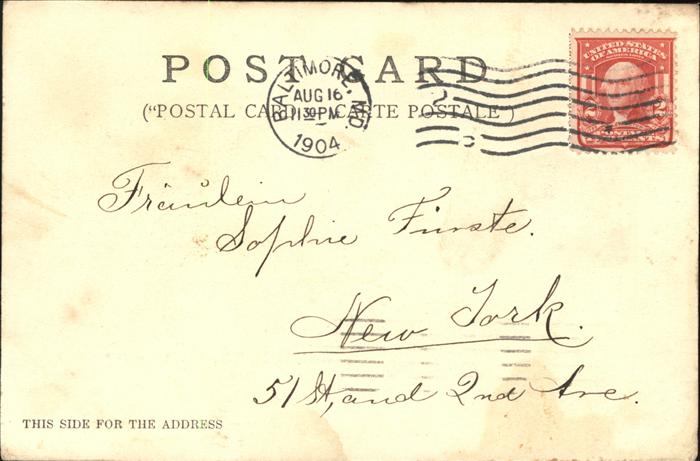 POST CARD
("POSTAL CARD — CARTE POSTALE")
BALTIMORE, MD.
AUG 16
11 30 PM
1904
UNITED STATES
OF AMERICA
2 2
CENTS
Fräulein
Sophie Fürste.
New York.
51 St, and 2nd Ave.
THIS SIDE FOR THE ADDRESS